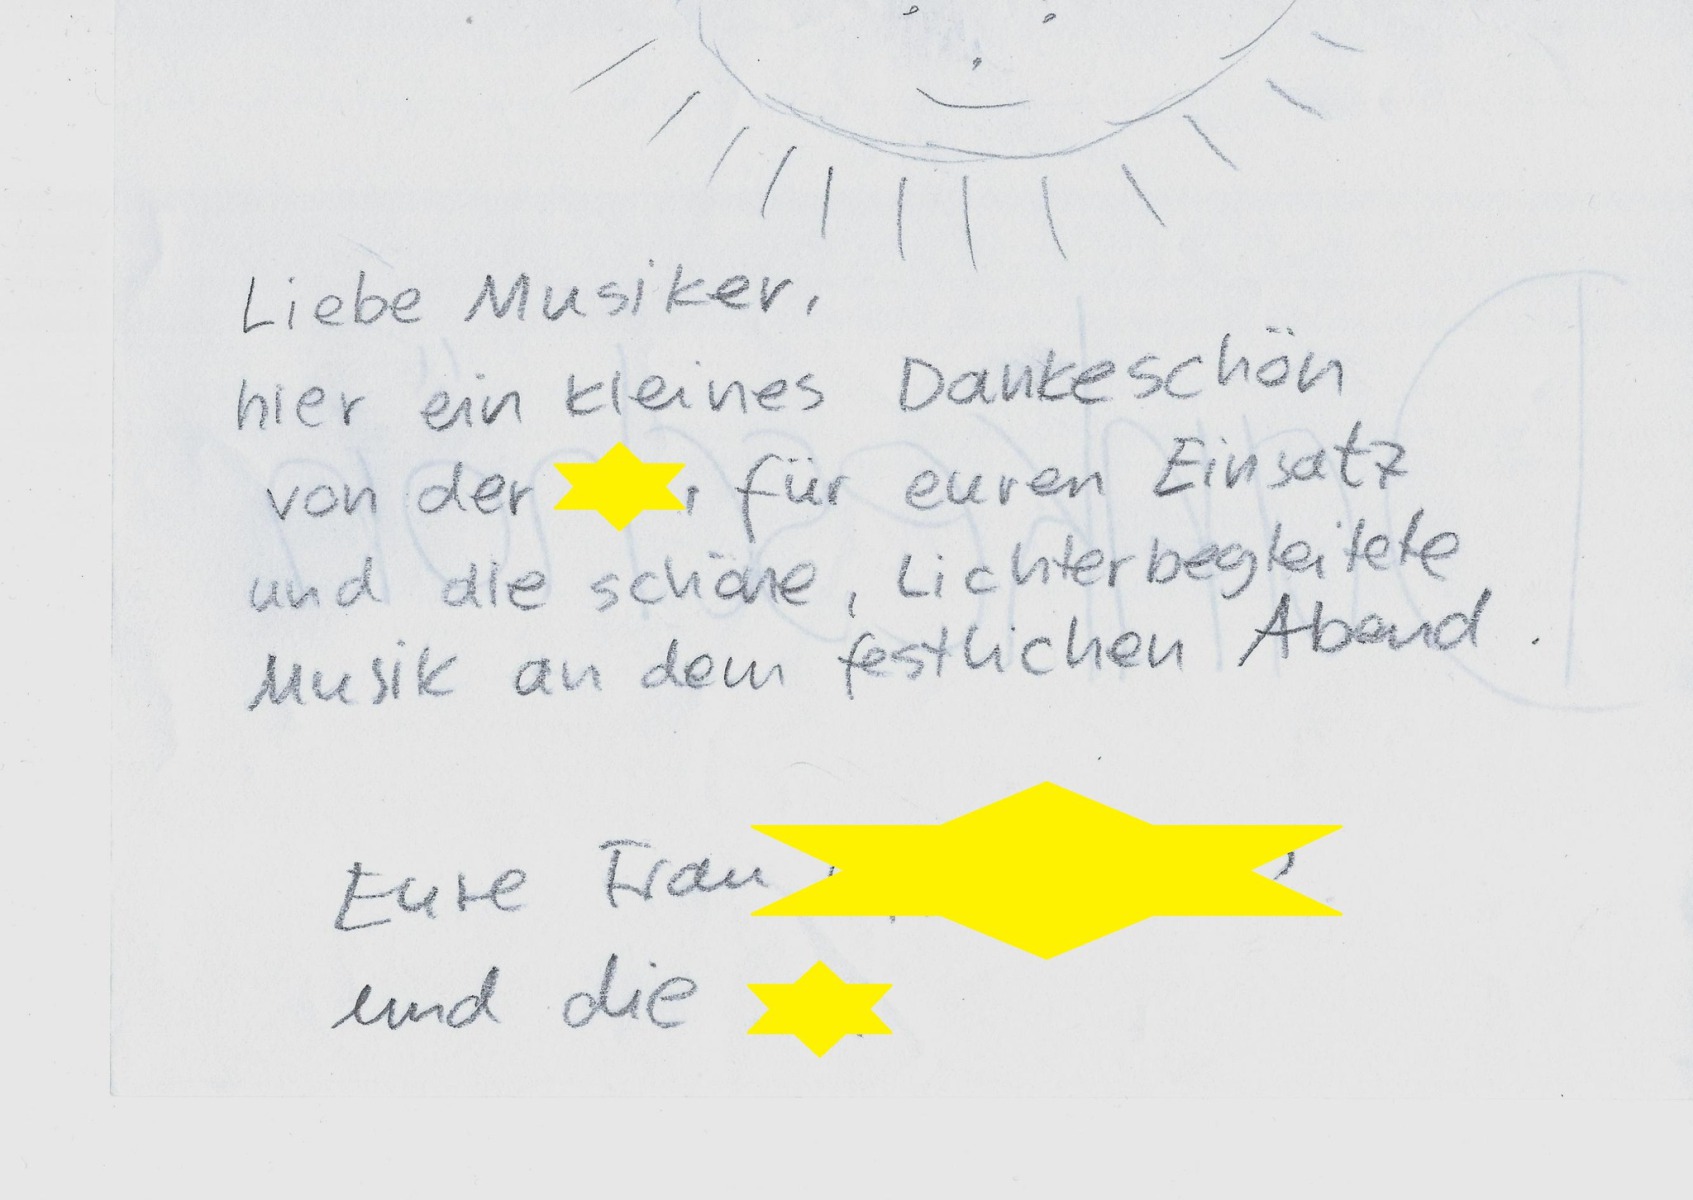 Liebe Musiker,
hier ein kleines Dankeschön
von der , für euren Einsatz
und die schöne, Lichterbegleitete
Musik an dem festlichen Abend.
Eure Frau
und die